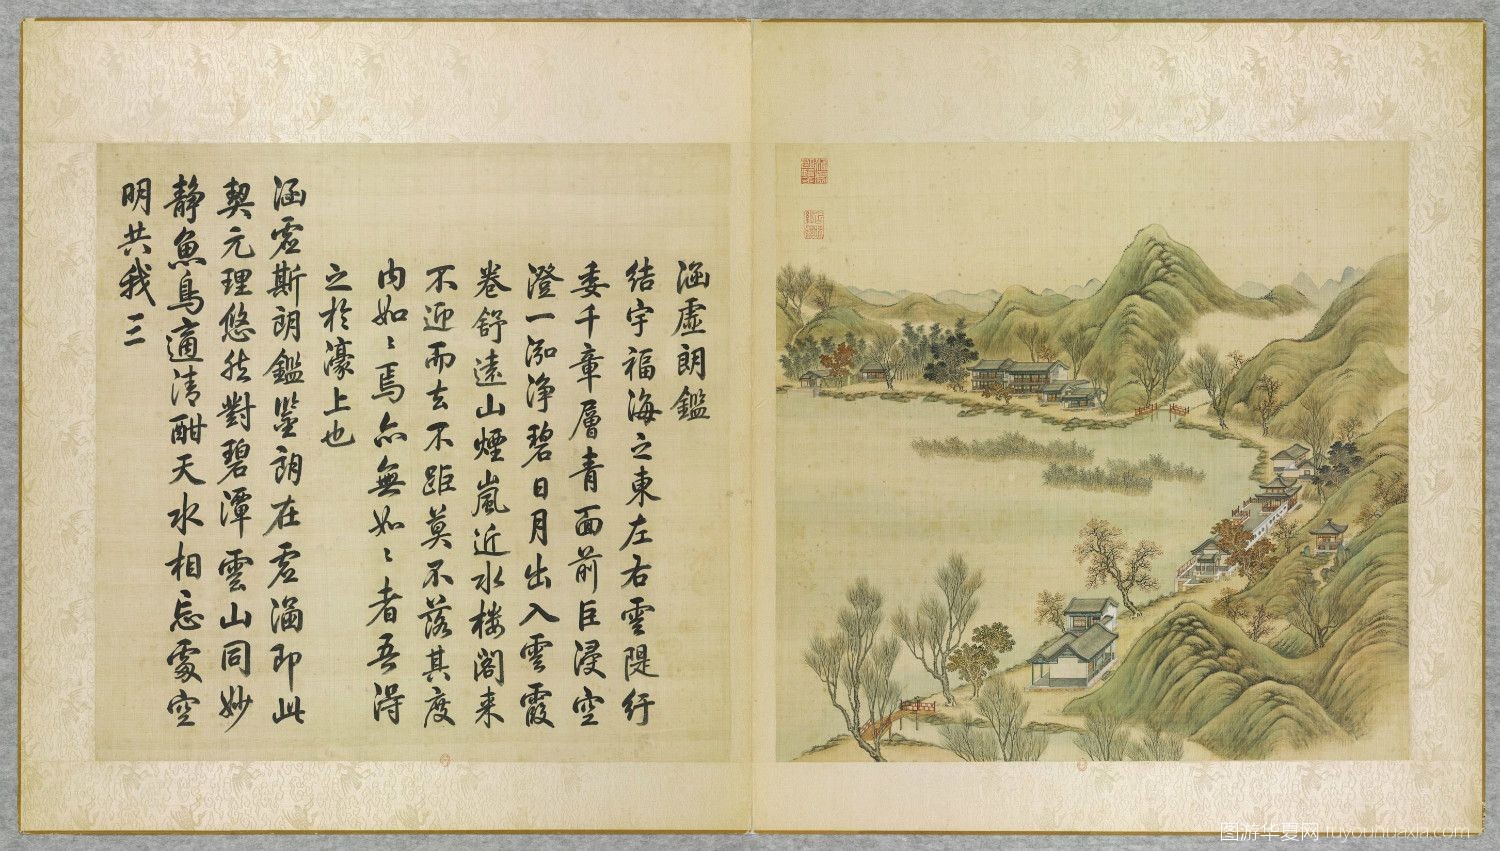 涵虛朗鑑
結宇福海之東左右雲隄紆
委千章層青面前巨浸空
澄一泓淨碧日月出入雲霞
卷舒遠山煙嵐近水楼阁来
不迎而去不距莫不落其度
内如〻焉亦無如〻者吾得
之於濠上也
涵虗斯朗鑑鑒朗在虗涵即此
契元理悠然對碧潭雲山同妙
静魚鳥適清酣天水相忘處空
明共我三
图游华夏网 tuyouhuaxia.com